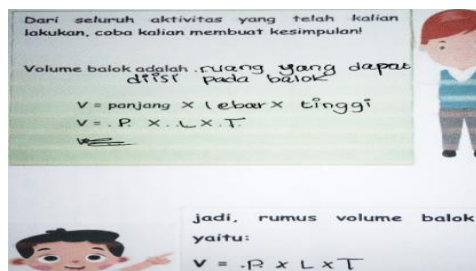 Dari seluruh aktivitas yang telah kalian
lakukan, coba kalian membuat kesimpulan!
Volume balok adalah .ruang yang dapat
diisi pada balok
V = panjang × lebar × tinggi
V = .P. X . L X .T.
jadi, rumus volume balok
yaitu:
V = .P X L X T